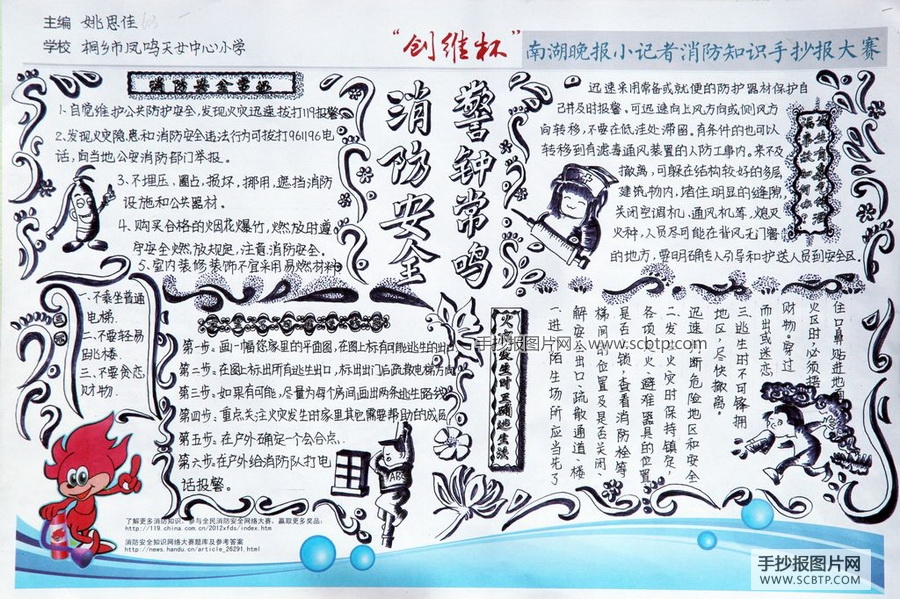 主编 姚思佳
学校 桐乡市凤鸣天女中心小学
“创维杯”南湖晚报小记者消防知识手抄报大赛
消防安全常识
1.自觉维护公共防护安全,发现火灾迅速拨打119报警
2.发现火灾隐患和消防安全违法行为可拨打96119电
话,向当地公安消防部门举报。
3.不埋压、圈占、损坏、挪用、遮挡消防
设施和公共器材。
4.购买合格的烟花爆竹,燃放时遵
守安全燃放规定,注意消防安全.
5.室内装修装饰不宜采用易燃材料
消防安全
警钟常鸣
迅速采用常备或就便的防护器材保护自
己并及时报警。可迅速向上风方向或侧风方
向转移,不要在低洼处滞留。有条件的也可以
转移到有滤毒通风装置的人防工事内。来不及
撤离,可躲在结构较好的多层
建筑物内,堵住明显的缝隙,
关闭空调机、通风机等,熄灭
火种,人员尽可能在背风无门窗
的地方,要明确专人引导和护送人员到安全区.
三不
一.不乘坐普通
电梯.
二.不要轻易
跳楼.
三.不要贪恋
财物.
第一步.画一幅您家里的平面图,在图上标有可能逃生的出口
第二步.在图上标出所有逃生出口,标出出门后疏散电梯方向
第三步.如果有可能,尽量为每个房间画出两条逃生路线
第四步.重点关注火灾发生时家里其它需要帮助的成员
第五步.在户外确定一个会合点.
第六步.在户外给消防队打电
话报警。
ABC
火灾发生时正确地生法
一.进入陌生场所应当先了
解安全出口、疏散通道、楼
梯间的位置及是否关闭,
是否上锁,查看消防栓等
各项灭火、避难器具的位置
二.发生火灾时保持镇定,
迅速判断危险地区和安全
地区,尽快撤离。
三.逃生时不可够拥
而出或迷恋
财物,穿过
火区时,必须捂
住口鼻贴进地面
手抄报图片网 www.scbtp.com
了解更多消防知识、参与全民消防安全网络大赛,赢取更多奖品:
http://119.china.com.cn/2012xfds/index.htm
消防安全知识网络大赛题库及参考答案
http://news.handu.cn/article_26291.html
手抄报图片网
WWW.SCBTP.COM